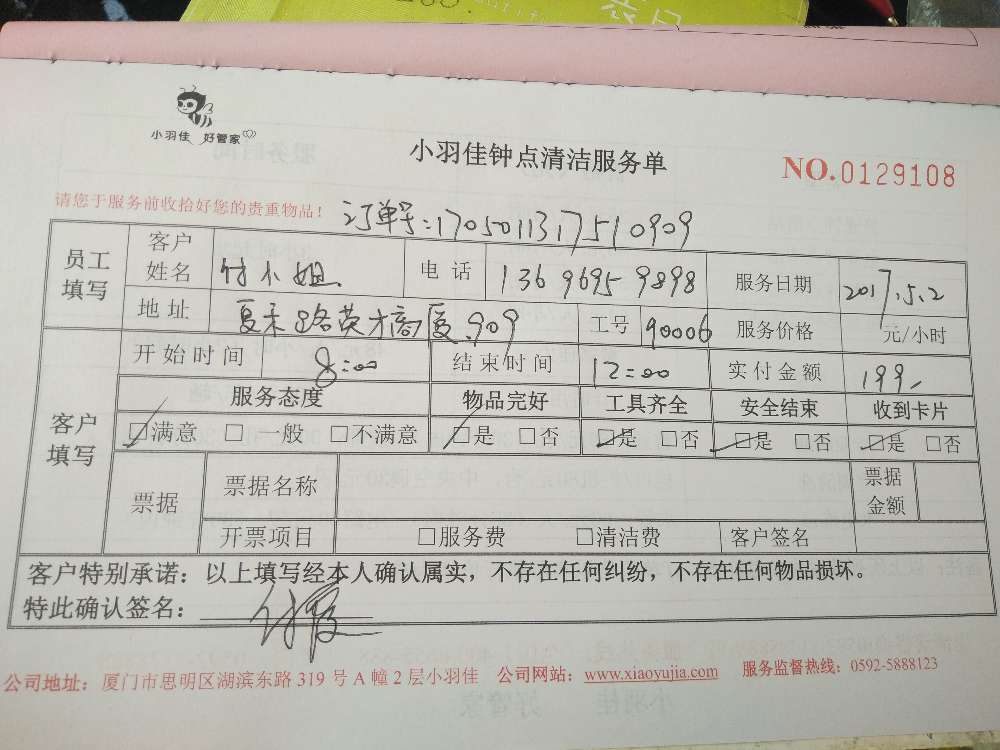 小羽佳 好管家
小羽佳钟点清洁服务单
NO.0129108
请您于服务前收拾好您的贵重物品！ 订单号:1705011317510909
员工填写 客户姓名 付小姐 电话 136 9695 9898 服务日期 2017.5.2
地址 夏禾路英才商厦.909 工号 90006 服务价格 元/小时
开始时间 8:00 结束时间 12:00 实付金额 199
客户填写 服务态度 物品完好 工具齐全 安全结束 收到卡片
☑满意 □一般 □不满意 ☑是 □否 ☑是 □否 ☑是 □否 ☑是 □否
票据 票据名称 票据金额
开票项目 □服务费 □清洁费 客户签名
客户特别承诺：以上填写经本人确认属实，不存在任何纠纷，不存在任何物品损坏。
特此确认签名：
公司地址：厦门市思明区湖滨东路 319 号 A 幢 2 层小羽佳 公司网站：www.xiaoyujia.com 服务监督热线：0592-5888123